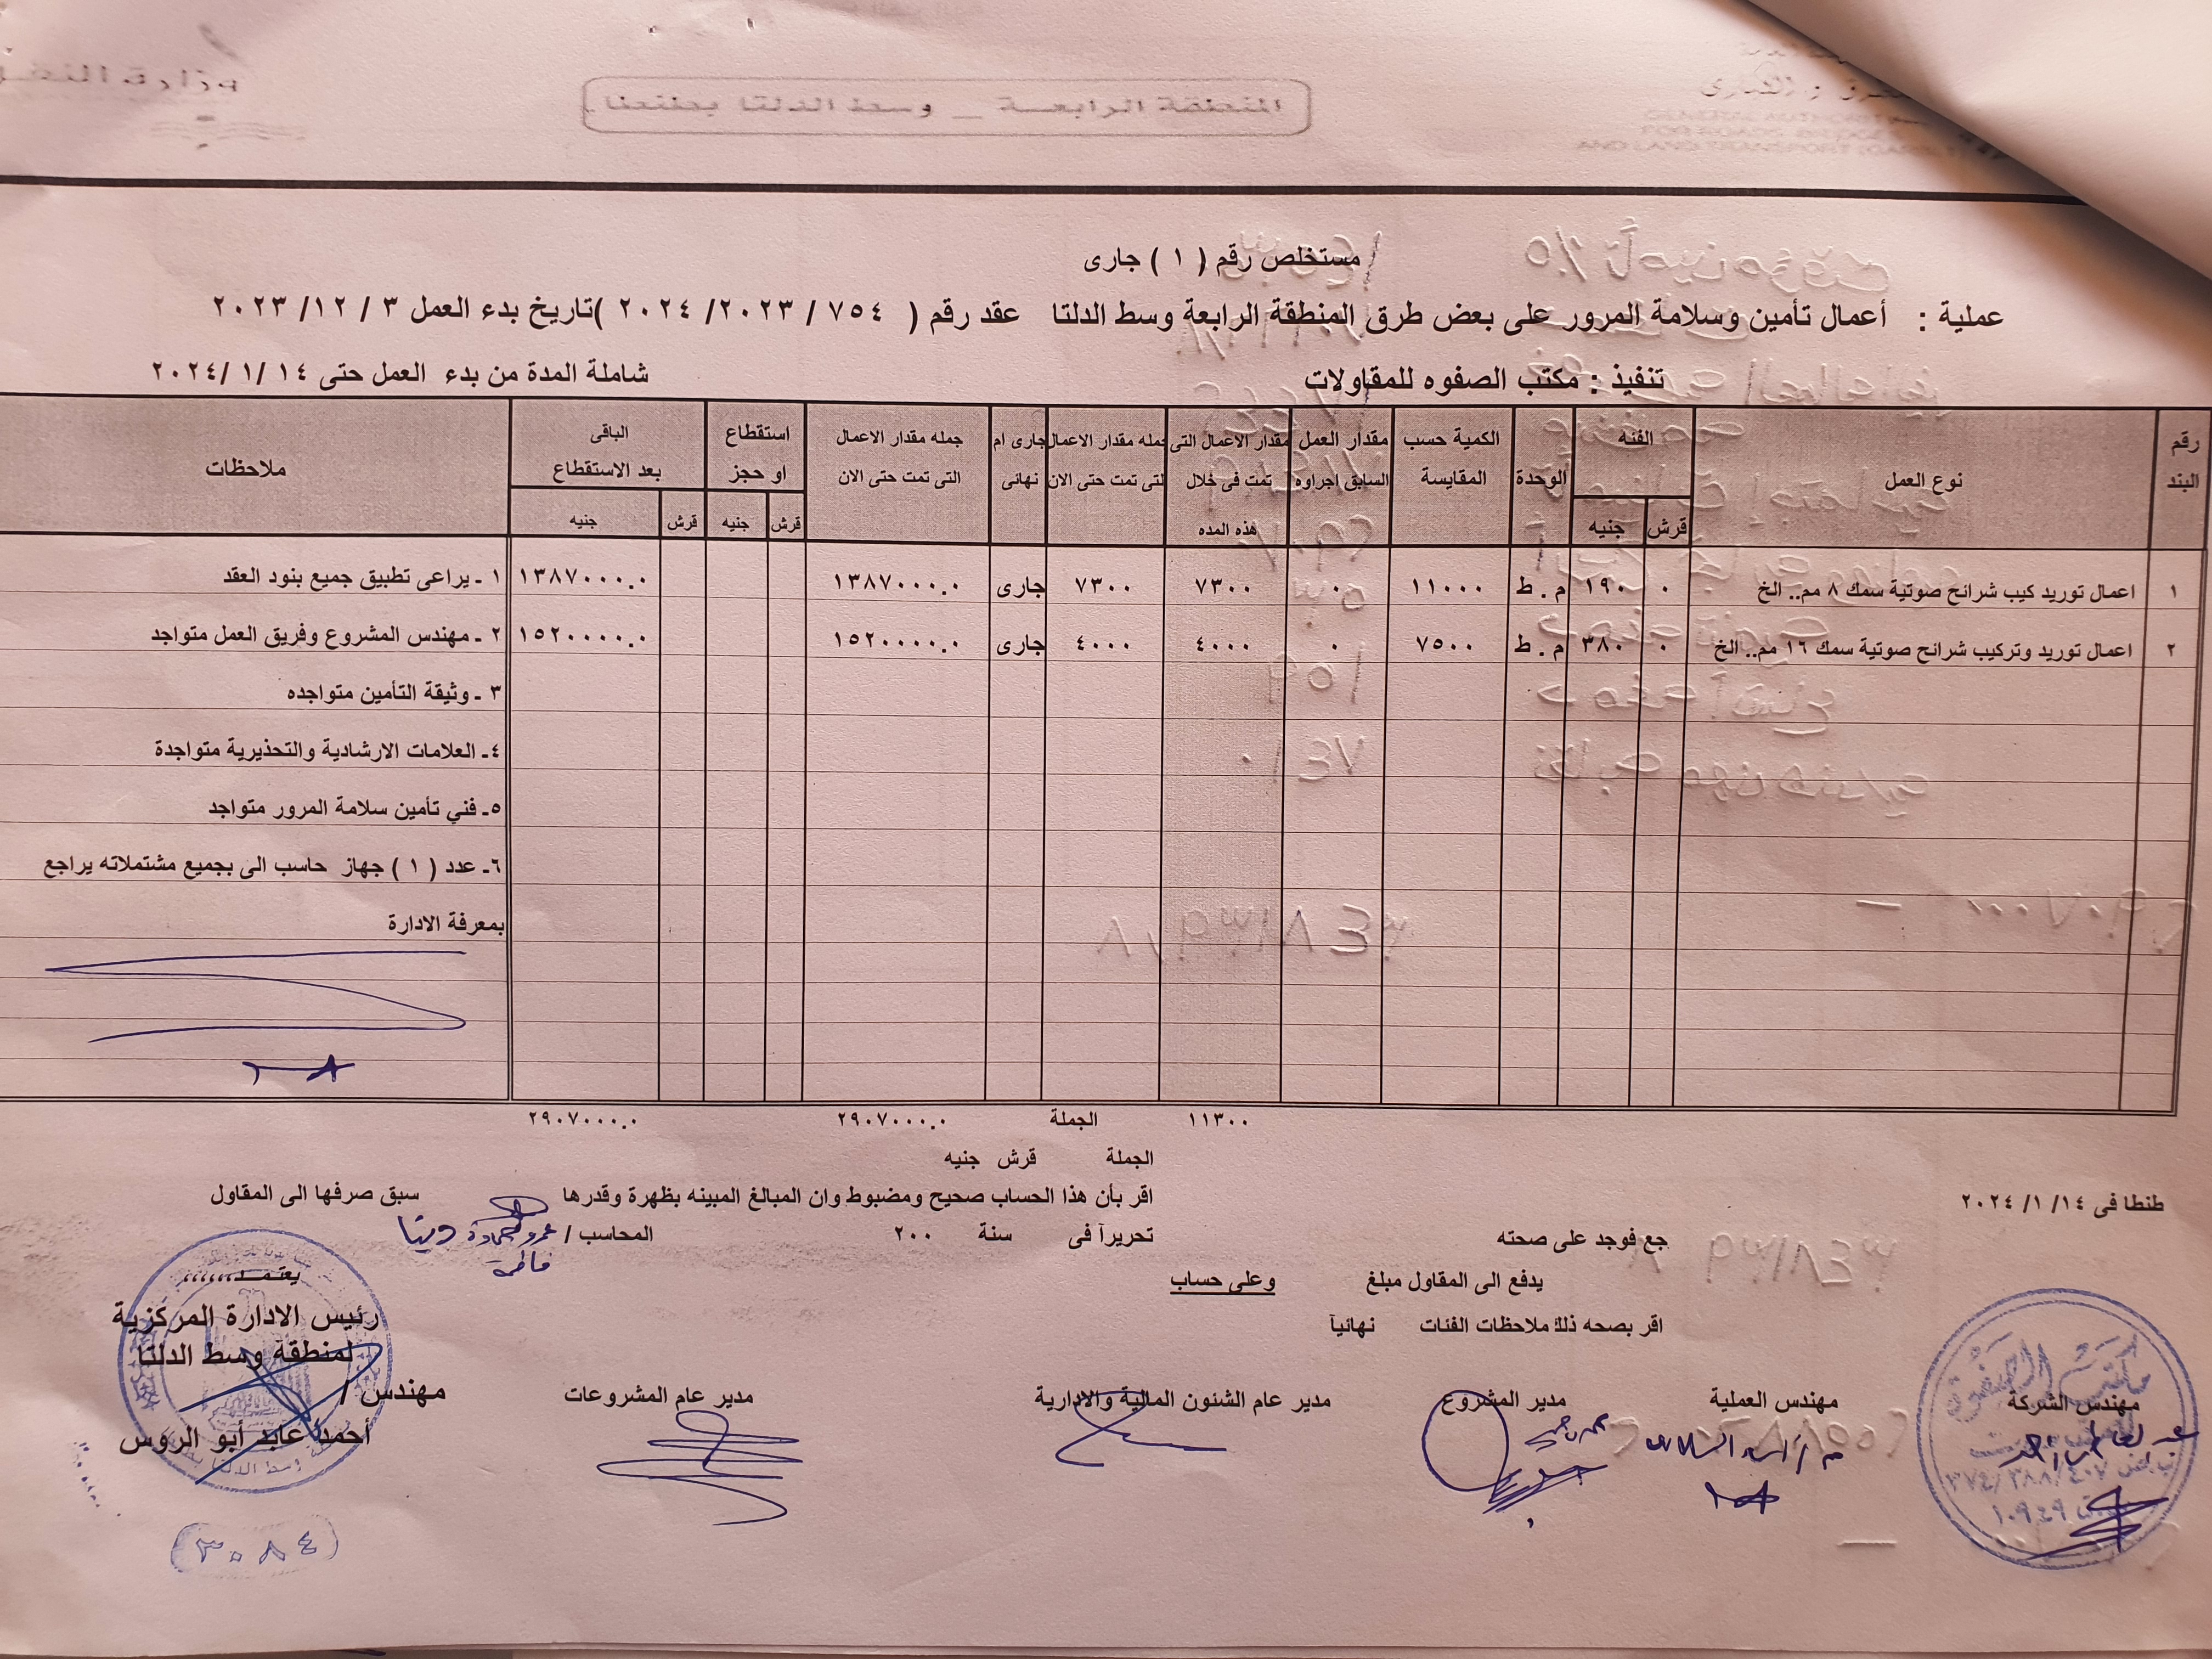 المنطقة الرابعة _ وسط الدلتا بطنطا
GENERAL AUTHORITY
FOR ROADS, BRIDGES
AND LAND TRANSPORT
مستخلص رقم ( ١ ) جارى
عملية : أعمال تأمين وسلامة المرور على بعض طرق المنطقة الرابعة وسط الدلتا عقد رقم ( ٧٥٤ / ٢٠٢٣/ ٢٠٢٤ )تاريخ بدء العمل ٣ / ١٢/ ٢٠٢٣
تنفيذ : مكتب الصفوه للمقاولات شاملة المدة من بدء العمل حتى ١٤ /١ /٢٠٢٤
رقم البند نوع العمل الفئه قرش جنيه الوحدة الكمية حسب المقايسة مقدار العمل السابق اجراوه مقدار الاعمال التى تمت فى خلال هذه المده جمله مقدار الاعمال التى تمت حتى الان جارى ام نهائى جمله مقدار الاعمال التى تمت حتى الان استقطاع او حجز قرش جنيه الباقى بعد الاستقطاع قرش جنيه ملاحظات
١ اعمال توريد كيب شرائح صوتية سمك ٨ مم.. الخ ٠ ١٩٠ م . ط ١١٠٠٠ ٠ ٧٣٠٠ ٧٣٠٠ جارى ١٣٨٧٠٠٠.٠ ١٣٨٧٠٠٠.٠ ١ - يراعى تطبيق جميع بنود العقد
٢ اعمال توريد وتركيب شرائح صوتية سمك ١٦ مم.. الخ ٠ ٣٨٠ م . ط ٧٥٠٠ ٠ ٤٠٠٠ ٤٠٠٠ جارى ١٥٢٠٠٠٠.٠ ١٥٢٠٠٠٠.٠ ٢ - مهندس المشروع وفريق العمل متواجد
٣ - وثيقة التأمين متواجده
٤- العلامات الارشادية والتحذيرية متواجدة
٥- فني تأمين سلامة المرور متواجد
٦- عدد ( ١ ) جهاز حاسب الى بجميع مشتملاته يراجع
بمعرفة الادارة
١١٣٠٠ الجملة ٢٩٠٧٠٠٠.٠ ٢٩٠٧٠٠٠.٠
الجملة قرش جنيه
طنطا فى ١٤/ ١/ ٢٠٢٤ اقر بأن هذا الحساب صحيح ومضبوط وان المبالغ المبينه بظهرة وقدرها سبق صرفها الى المقاول
جع فوجد على صحته تحريرآ فى سنة ٢٠٠ المحاسب /
يدفع الى المقاول مبلغ وعلى حساب
اقر بصحه ذلك ملاحظات الفئات نهائيآ
يعتمـد،،،،،،
رئيس الادارة المركزية
لمنطقة وسط الدلتا
مهندس /
أحمد عابد أبو الروس
مهندس الشركة مهندس العملية مدير المشروع مدير عام الشئون المالية والادارية مدير عام المشروعات
مكتب الصفوة
٣٧٤/٣٨٨/٤٠٧
١٠٩٤٩
(٣٠٨٤)